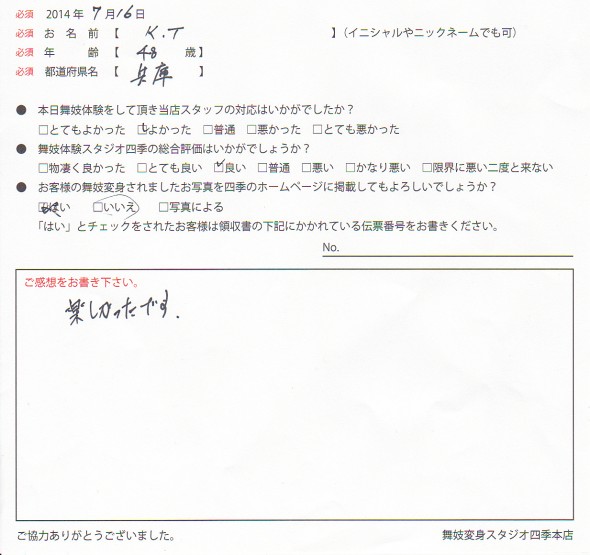 必須 2014年 7月16日
必須 お名前【 K.T 】(イニシャルやニックネームでも可)
必須 年齢【 48 歳】
必須 都道府県名【 兵庫 】
● 本日舞妓体験をして頂き当店スタッフの対応はいかがでしたか？
□とてもよかった □よかった □普通 □悪かった □とても悪かった
● 舞妓体験スタジオ四季の総合評価はいかがでしょうか？
□物凄く良かった □とても良い □良い □普通 □悪い □かなり悪い □限界に悪い二度と来ない
● お客様の舞妓変身されましたお写真を四季のホームページに掲載してもよろしいでしょうか？
□はい □いいえ □写真による
「はい」とチェックをされたお客様は領収書の下記にかかれている伝票番号をお書きください。
No.
ご感想をお書き下さい。
楽しかったです.
ご協力ありがとうございました。
舞妓変身スタジオ四季本店